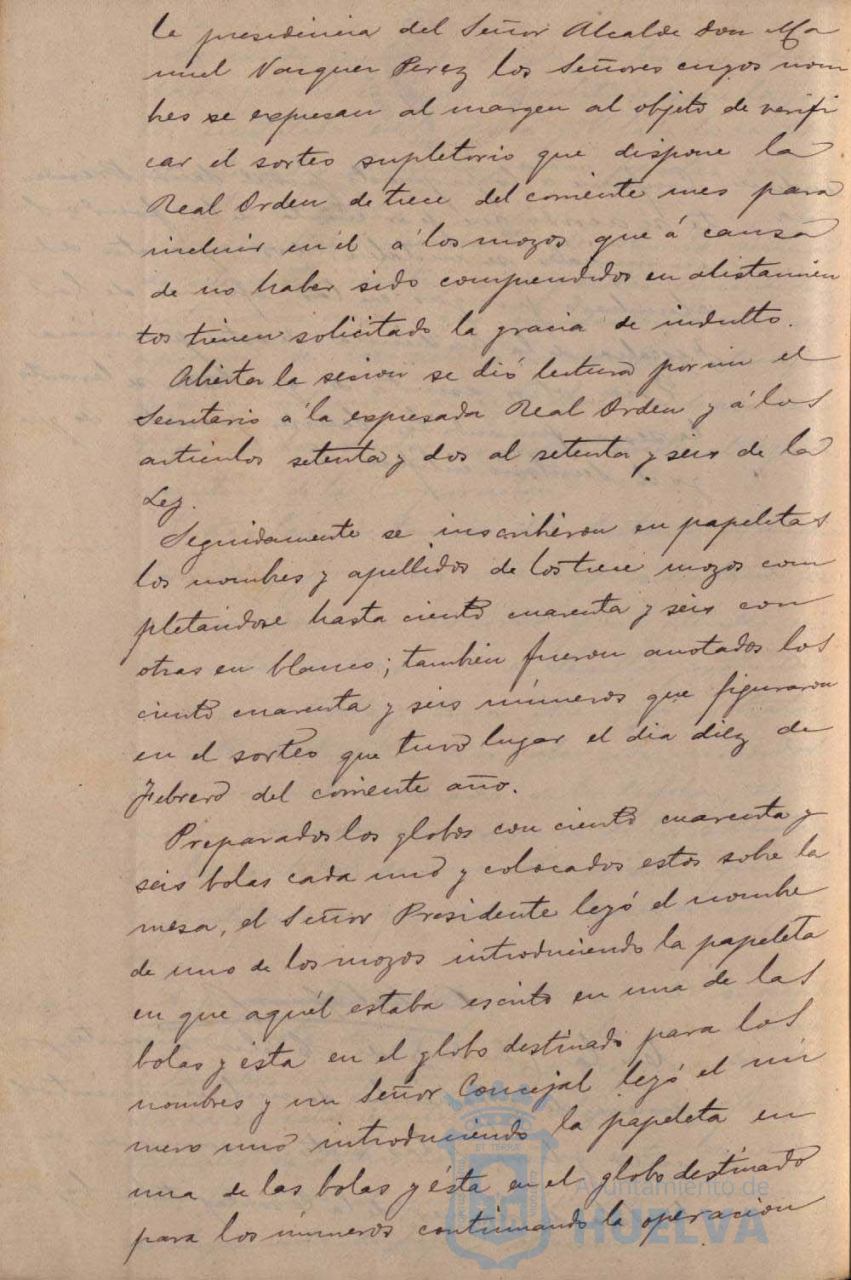 la presidencia del Señor Alcalde don Ma
nuel Vazquez Perez los Señores cuyos nom
bres se expresan al margen al objeto de verifi
car el sorteo supletorio que dispone la
Real Orden de trece del corriente mes para
incluir en él a los mozos que á causa
de no haber sido comprendidos en alistamien
tos tienen solicitado la gracia de indulto.
Abierta la sesion se dió lectura por mi el
Secretario á la expresada Real Orden y á los
articulos setenta y dos al setenta y seis de la
Ley.
Seguidamente se inscribieron en papeletas
los nombres y apellidos de los trece mozos com
pletándose hasta ciento cuarenta y seis con
otras en blanco; tambien fueron anotados los
ciento cuarenta y seis números que figuraron
en el sorteo que tuvo lugar el dia diez de
Febrero del corriente año.
Preparados los globos con ciento cuarenta y
seis bolas cada uno y colocados estos sobre la
mesa, el Señor Presidente leyó el nombre
de uno de los mozos introduciendo la papeleta
en que aquél estaba escrito en una de las
bolas y ésta en el globo destinado para los
nombres y un Señor Concejal leyó el nú
mero uno introduciendo la papeleta en
una de las bolas y ésta en el globo destinado
para los números continuando la operacion
Ayuntamiento de
HUELVA